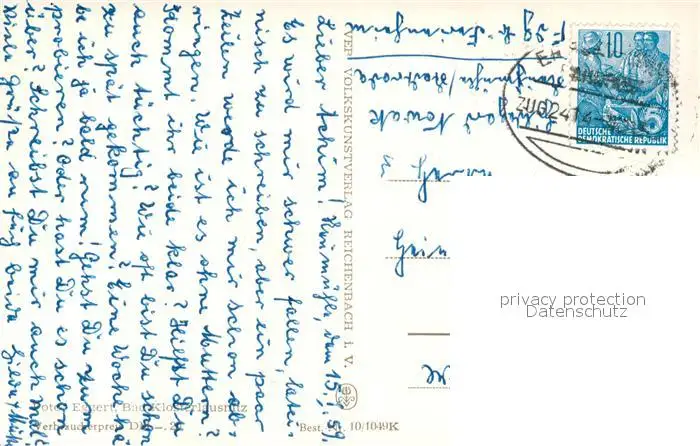 Lieber Achim! Neumühle, den 15.7.59.
Es wird mir schwer fallen, latei-
nisch zu schreiben, aber ein paar
Zeilen werde ich mir schon ab-
ringen. Wie ist es ohne Muttern?
Kommt ihr beide klar? Hilfst Du
auch tüchtig? Wie oft bist Du schon
zu spät gekommen? Eine Woche ha-
be ich ja bald rum! Gehst Du zum
probieren? Oder hast Du es schon
über? Schreibst Du mir auch mal?
Viele Grüße an Euch beide
VEB VOLKSKUNSTVERLAG REICHENBACH i. V.
Foto: Eggert, Bad Klosterlausnitz
Verbraucherpreis DM
Best. Nr. 10/1049K
Nowak
ZUG 241
10
DEUTSCHE
DEMOKRATISCHE REPUBLIK
privacy protection
Datenschutz